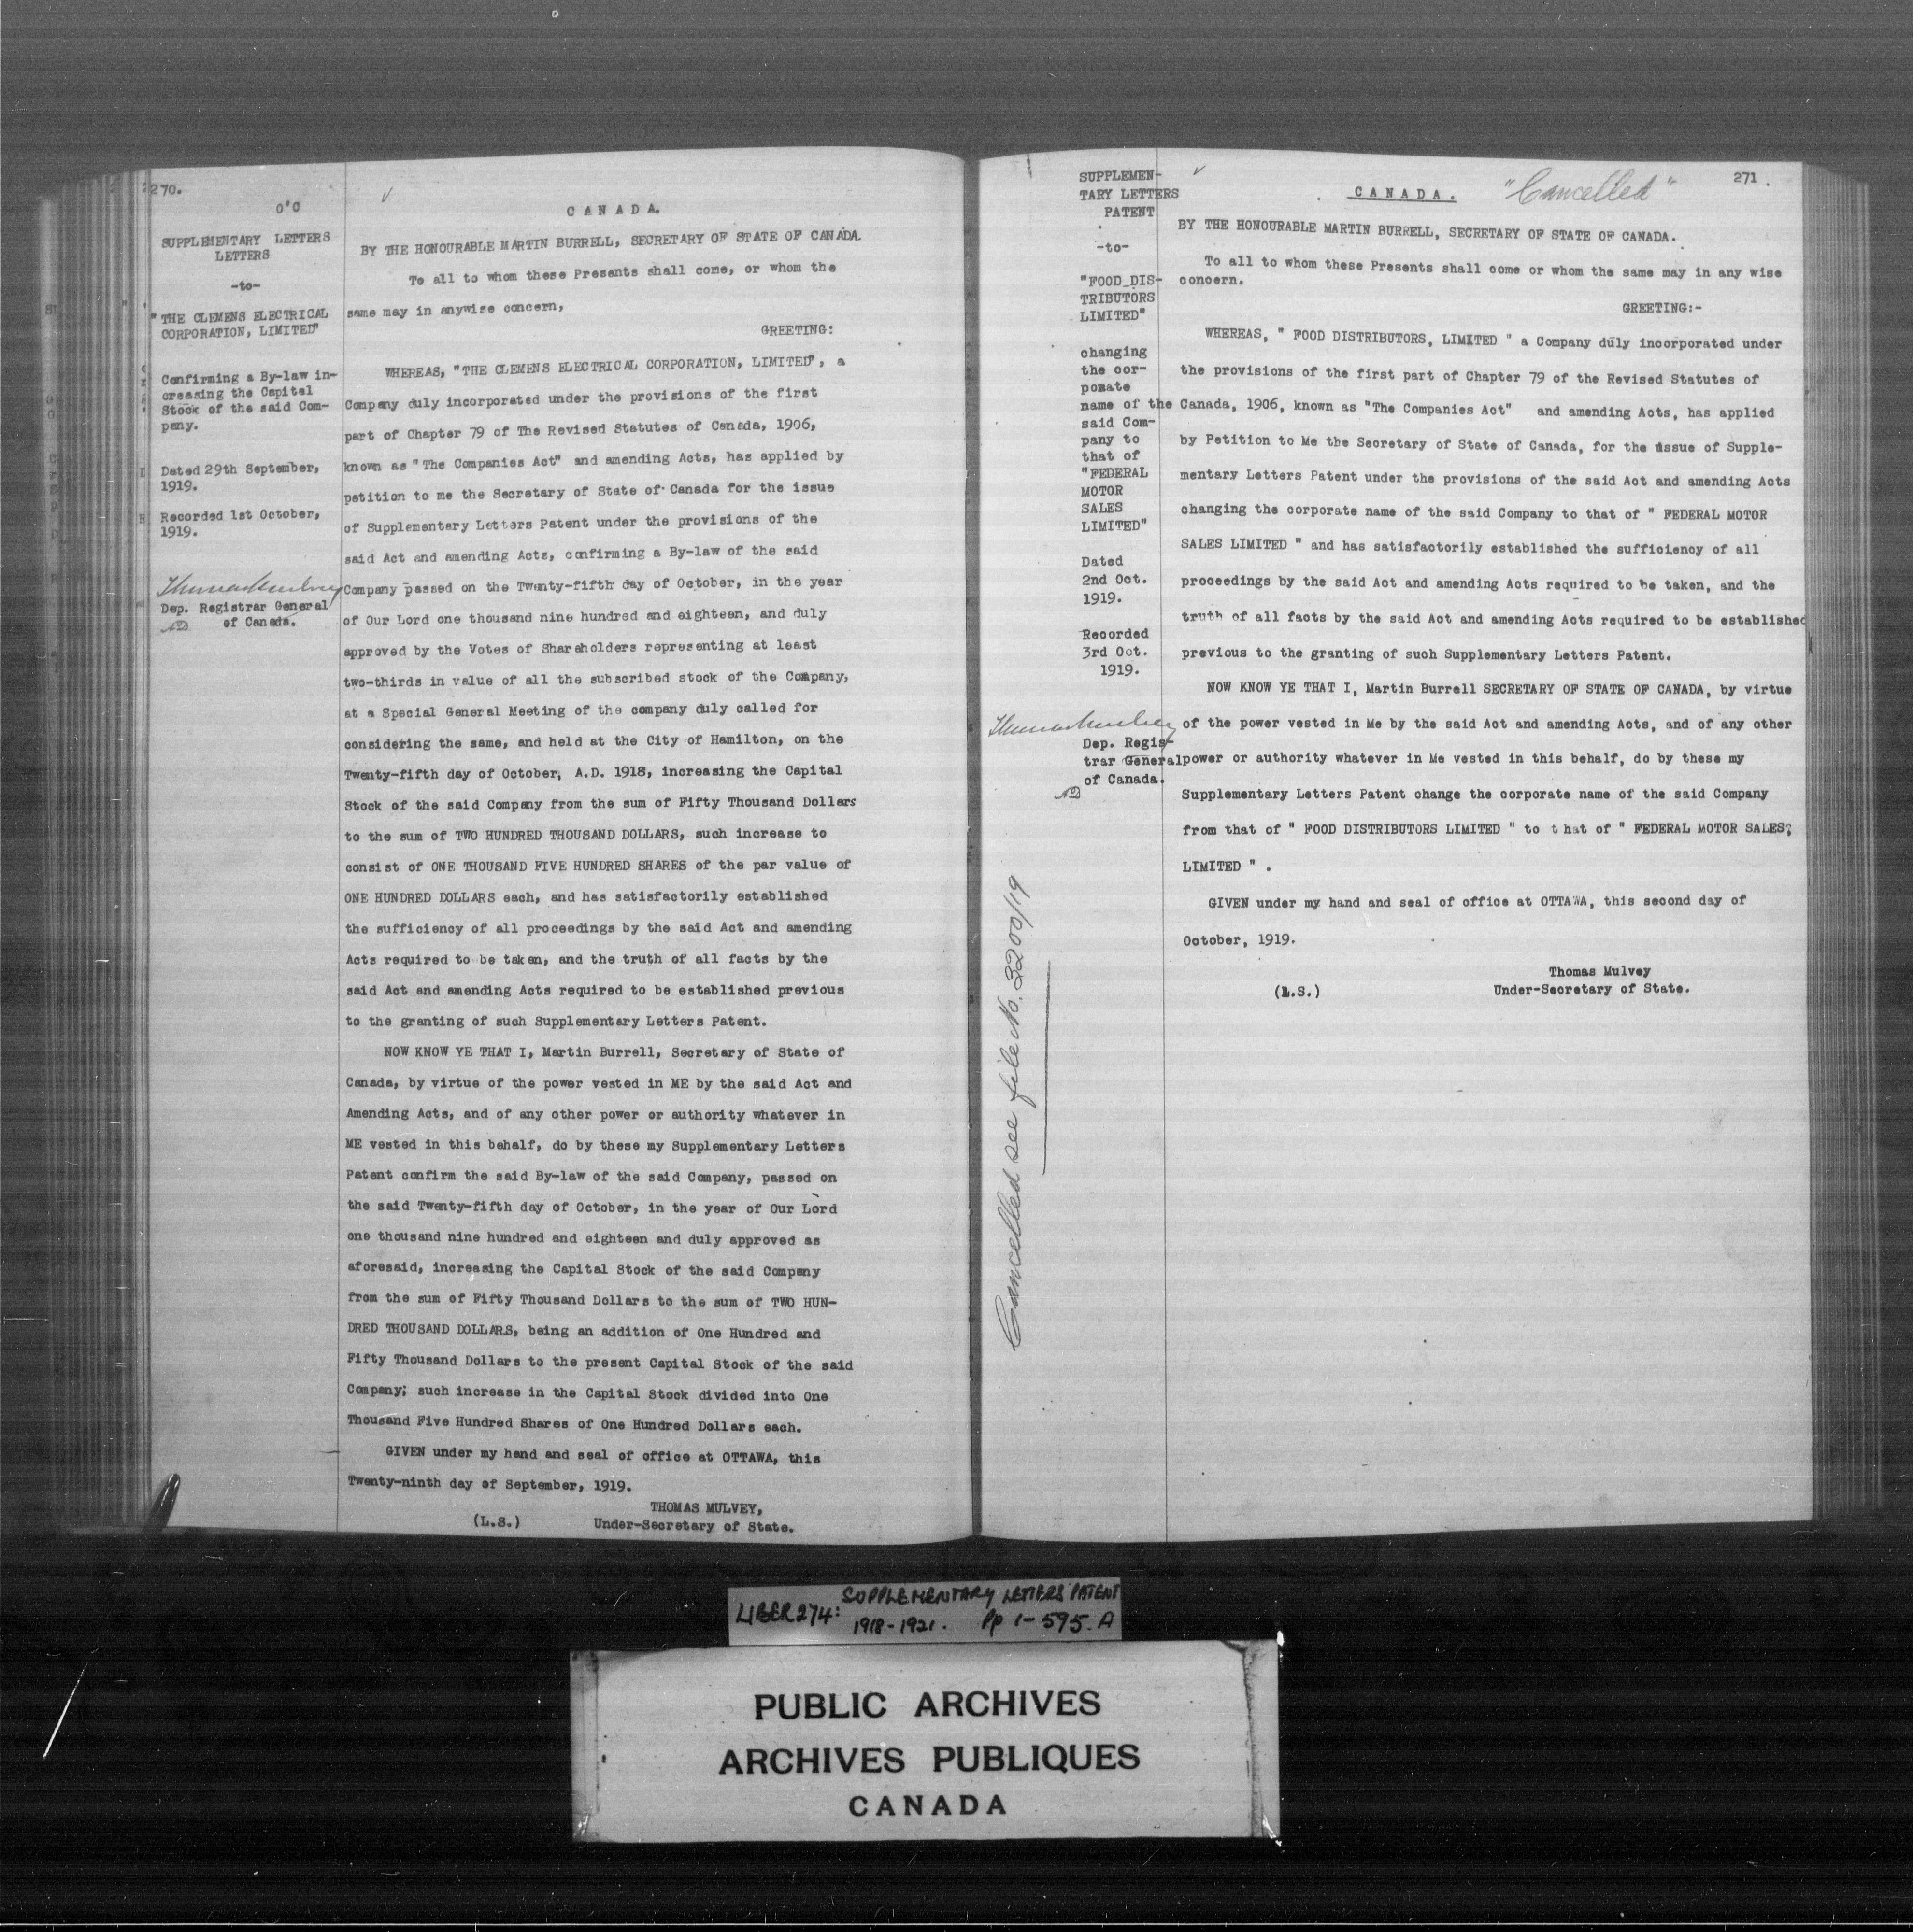 270.
O'C
SUPPLEMENTARY LETTERS
LETTERS
-to-
"THE CLEMENS ELECTRICAL
CORPORATION, LIMITED"
Confirming a By-law in-
creasing the Capital
Stock of the said Com-
pany.
Dated 29th September,
1919.
Recorded 1st October,
1919.
Thomas Mulvey
Dep. Registrar General
of Canada.
CANADA.
BY THE HONOURABLE MARTIN BURRELL, SECRETARY OF STATE OF CANADA.
To all to whom these Presents shall come, or whom the
same may in anywise concern,
GREETING:
WHEREAS, "THE CLEMENS ELECTRICAL CORPORATION, LIMITED", a
Company duly incorporated under the provisions of the first
part of Chapter 79 of The Revised Statutes of Canada, 1906,
known as "The Companies Act" and amending Acts, has applied by
petition to me the Secretary of State of Canada for the issue
of Supplementary Letters Patent under the provisions of the
said Act and amending Acts, confirming a By-law of the said
Company passed on the Twenty-fifth day of October, in the year
of Our Lord one thousand nine hundred and eighteen, and duly
approved by the Votes of Shareholders representing at least
two-thirds in value of all the subscribed stock of the Company,
at a Special General Meeting of the company duly called for
considering the same, and held at the City of Hamilton, on the
Twenty-fifth day of October, A.D. 1918, increasing the Capital
Stock of the said Company from the sum of Fifty Thousand Dollars
to the sum of TWO HUNDRED THOUSAND DOLLARS, such increase to
consist of ONE THOUSAND FIVE HUNDRED SHARES of the par value of
ONE HUNDRED DOLLARS each, and has satisfactorily established
the sufficiency of all proceedings by the said Act and amending
Acts required to be taken, and the truth of all facts by the
said Act and amending Acts required to be established previous
to the granting of such Supplementary Letters Patent.
NOW KNOW YE THAT I, Martin Burrell, Secretary of State of
Canada, by virtue of the power vested in ME by the said Act and
Amending Acts, and of any other power or authority whatever in
ME vested in this behalf, do by these my Supplementary Letters
Patent confirm the said By-law of the said Company, passed on
the said Twenty-fifth day of October, in the year of Our Lord
one thousand nine hundred and eighteen and duly approved as
aforesaid, increasing the Capital Stock of the said Company
from the sum of Fifty Thousand Dollars to the sum of TWO HUN-
DRED THOUSAND DOLLARS, being an addition of One Hundred and
Fifty Thousand Dollars to the present Capital Stock of the said
Company; such increase in the Capital Stock divided into One
Thousand Five Hundred Shares of One Hundred Dollars each.
GIVEN under my hand and seal of office at OTTAWA, this
Twenty-ninth day of September, 1919.
THOMAS MULVEY,
(L.S.) Under-Secretary of State.
271.
SUPPLEMEN-
TARY LETTERS
PATENT
-to-
"FOOD DIS-
TRIBUTORS
LIMITED"
changing
the cor-
porate
name of the
said Com-
pany to
that of
"FEDERAL
MOTOR
SALES
LIMITED"
Dated
2nd Oct.
1919.
Recorded
3rd Oct.
1919.
Thomas Mulvey
Dep. Regis-
trar General
of Canada.
Cancelled see file No. 3200/19
CANADA. "Cancelled"
BY THE HONOURABLE MARTIN BURRELL, SECRETARY OF STATE OF CANADA.
To all to whom these Presents shall come or whom the same may in any wise
concern.
GREETING:-
WHEREAS, " FOOD DISTRIBUTORS, LIMITED " a Company duly incorporated under
the provisions of the first part of Chapter 79 of the Revised Statutes of
Canada, 1906, known as "The Companies Act" and amending Acts, has applied
by Petition to Me the Secretary of State of Canada, for the issue of Supple-
mentary Letters Patent under the provisions of the said Act and amending Acts
changing the corporate name of the said Company to that of " FEDERAL MOTOR
SALES LIMITED " and has satisfactorily established the sufficiency of all
proceedings by the said Act and amending Acts required to be taken, and the
truth of all facts by the said Act and amending Acts required to be established
previous to the granting of such Supplementary Letters Patent.
NOW KNOW YE THAT I, Martin Burrell SECRETARY OF STATE OF CANADA, by virtue
of the power vested in Me by the said Act and amending Acts, and of any other
power or authority whatever in Me vested in this behalf, do by these my
Supplementary Letters Patent change the corporate name of the said Company
from that of " FOOD DISTRIBUTORS LIMITED " to that of " FEDERAL MOTOR SALES,
LIMITED " .
GIVEN under my hand and seal of office at OTTAWA, this second day of
October, 1919.
Thomas Mulvey
(L.S.) Under-Secretary of State.
LIBER 274: SUPPLEMENTARY LETTERS PATENT
1918-1921. Pp 1-595.A
PUBLIC ARCHIVES
ARCHIVES PUBLIQUES
CANADA